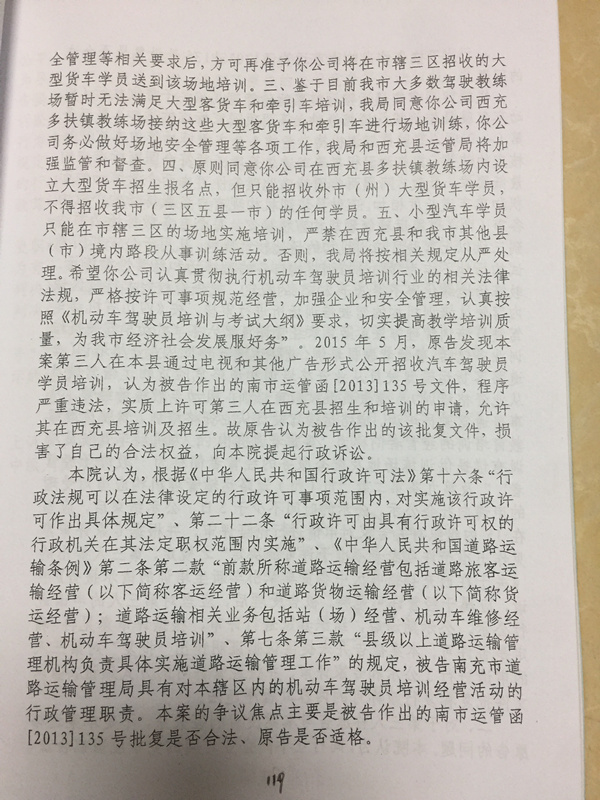 全管理等相关要求后，方可再准予你公司将在市辖三区招收的大
型货车学员送到该场地培训。三、鉴于目前我市大多数驾驶教练
场暂时无法满足大型客货车和牵引车培训，我局同意你公司西充
多扶镇教练场接纳这些大型客货车和牵引车进行场地训练，你公
司务必做好场地安全管理等各项工作，我局和西充县运管局将加
强监管和督查。四、原则同意你公司在西充县多扶镇教练场内设
立大型货车招生报名点，但只能招收外市（州）大型货车学员，
不得招收我市（三区五县一市）的任何学员。五、小型汽车学员
只能在市辖三区的场地实施培训，严禁在西充县和我市其他县
（市）境内路段从事训练活动。否则，我局将按相关规定从严处
理。希望你公司认真贯彻执行机动车驾驶员培训行业的相关法律
法规，严格按许可事项规范经营，加强企业和安全管理，认真按
照《机动车驾驶员培训与考试大纲》要求，切实提高教学培训质
量，为我市经济社会发展服好务”。2015年5月，原告发现本
案第三人在本县通过电视和其他广告形式公开招收汽车驾驶员
学员培训，认为被告作出的南市运管函[2013]135号文件，程序
严重违法，实质上许可第三人在西充县招生和培训的申请，允许
其在西充县培训及招生。故原告认为被告作出的该批复文件，损
害了自己的合法权益，向本院提起行政诉讼。
本院认为，根据《中华人民共和国行政许可法》第十六条“行
政法规可以在法律设定的行政许可事项范围内，对实施该行政许
可作出具体规定”、第二十二条“行政许可由具有行政许可权的
行政机关在其法定职权范围内实施”、《中华人民共和国道路运
输条例》第二条第二款“前款所称道路运输经营包括道路旅客运
输经营（以下简称客运经营）和道路货物运输经营（以下简称货
运经营）；道路运输相关业务包括站（场）经营、机动车维修经
营、机动车驾驶员培训”、第七条第三款“县级以上道路运输管
理机构负责具体实施道路运输管理工作”的规定，被告南充市道
路运输管理局具有对本辖区内的机动车驾驶员培训经营活动的
行政管理职责。本案的争议焦点主要是被告作出的南市运管函
[2013]135号批复是否合法、原告是否适格。
119